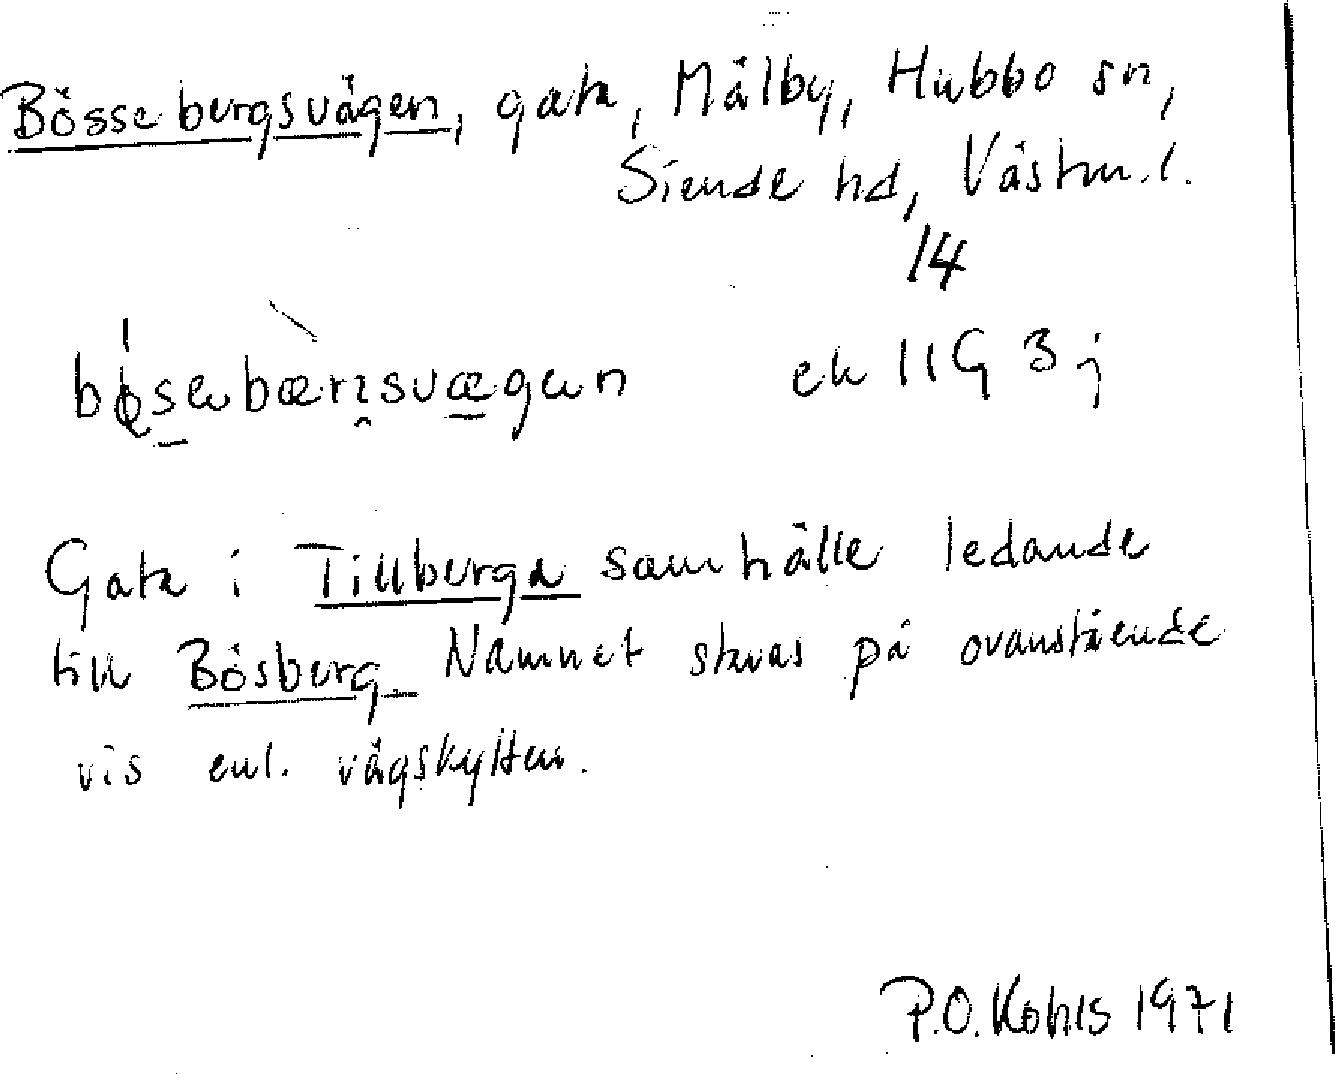 Bössebergsvägen, gata, Målby, Hubbo sn,
Siende hd, Västm. l.
14
bǿsebærjsvægen ek 11G 3j
Gata i Tillberga samhälle ledande
till Bösberg. Namnet skrivas på ovanstående
vis enl. vägskylten.
P.O. Kohls 1971